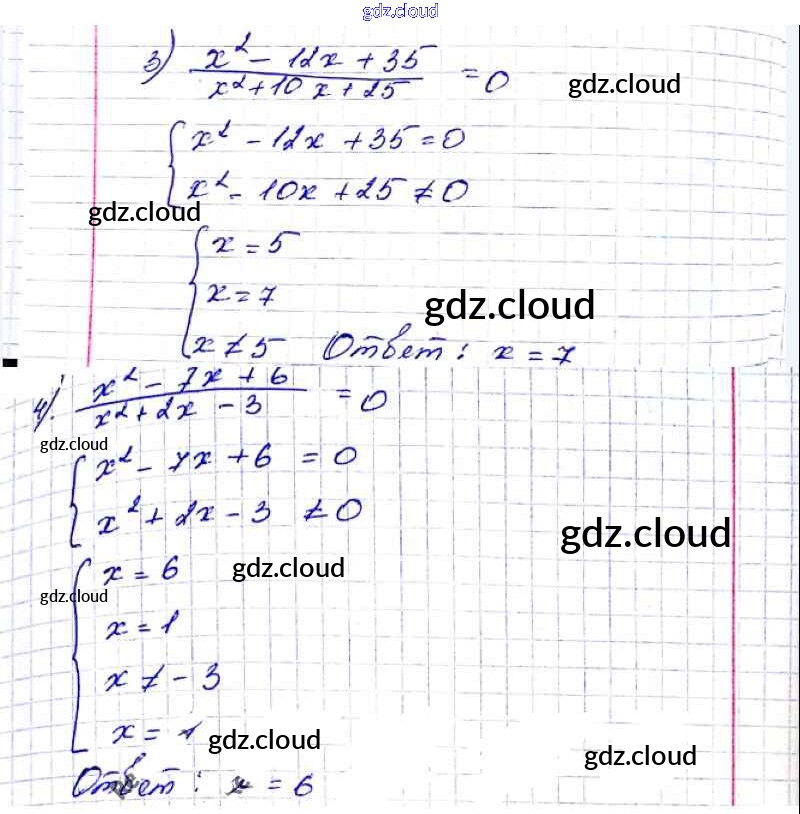 gdz.cloud
3) x² - 12x + 35 / x² + 10x + 25 = 0
gdz.cloud
{ x² - 12x + 35 = 0
x² - 10x + 25 ≠ 0
gdz.cloud
{ x = 5
x = 7
gdz.cloud
x ≠ 5 Ответ: x = 7
4) x² - 7x + 6 / x² + 2x - 3 = 0
gdz.cloud
{ x² - 7x + 6 = 0
x² + 2x - 3 ≠ 0
gdz.cloud
{ x = 6
gdz.cloud
gdz.cloud
x = 1
x ≠ -3
x = 1
gdz.cloud
gdz.cloud
Ответ: x = 6